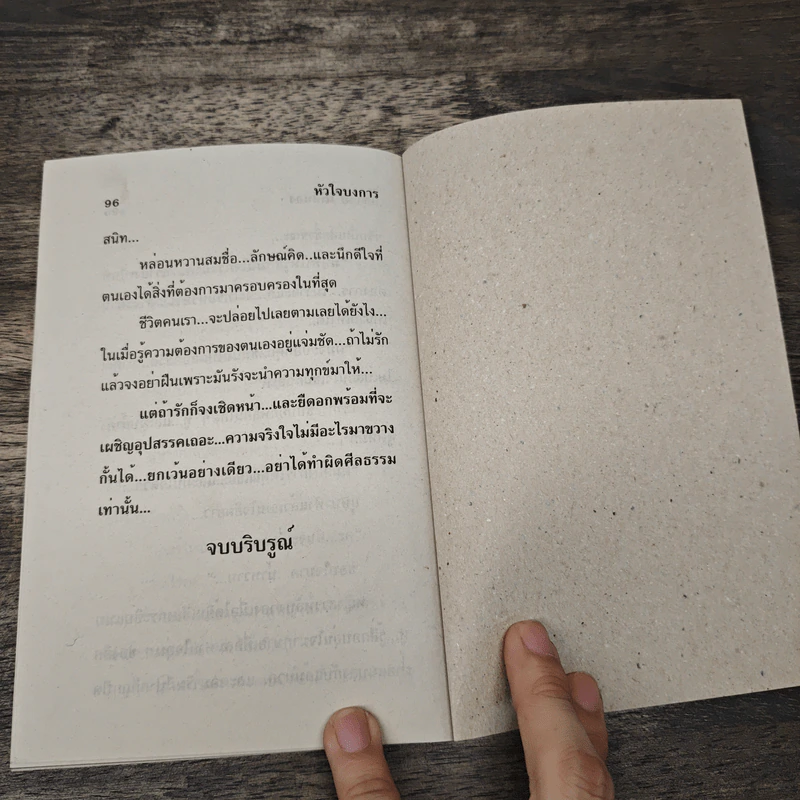 96
หัวใจบงการ
สนิท...
หล่อนหวานสมชื่อ...ลักษณ์คิด..และนึกดีใจที่
ตนเองได้สิ่งที่ต้องการมาครอบครองในที่สุด
ชีวิตคนเรา...จะปล่อยไปเลยตามเลยได้ยังไง...
ในเมื่อรู้ความต้องการของตนเองอยู่แจ่มชัด...ถ้าไม่รัก
แล้วจงอย่าฝืนเพราะมันรังจะนำความทุกข์มาให้...
แต่ถ้ารักก็จงเชิดหน้า...และยืดอกพร้อมที่จะ
เผชิญอุปสรรคเถอะ...ความจริงใจไม่มีอะไรมาขวาง
กั้นได้...ยกเว้นอย่างเดียว...อย่าได้ทำผิดศีลธรรม
เท่านั้น...
จบบริบรูณ์